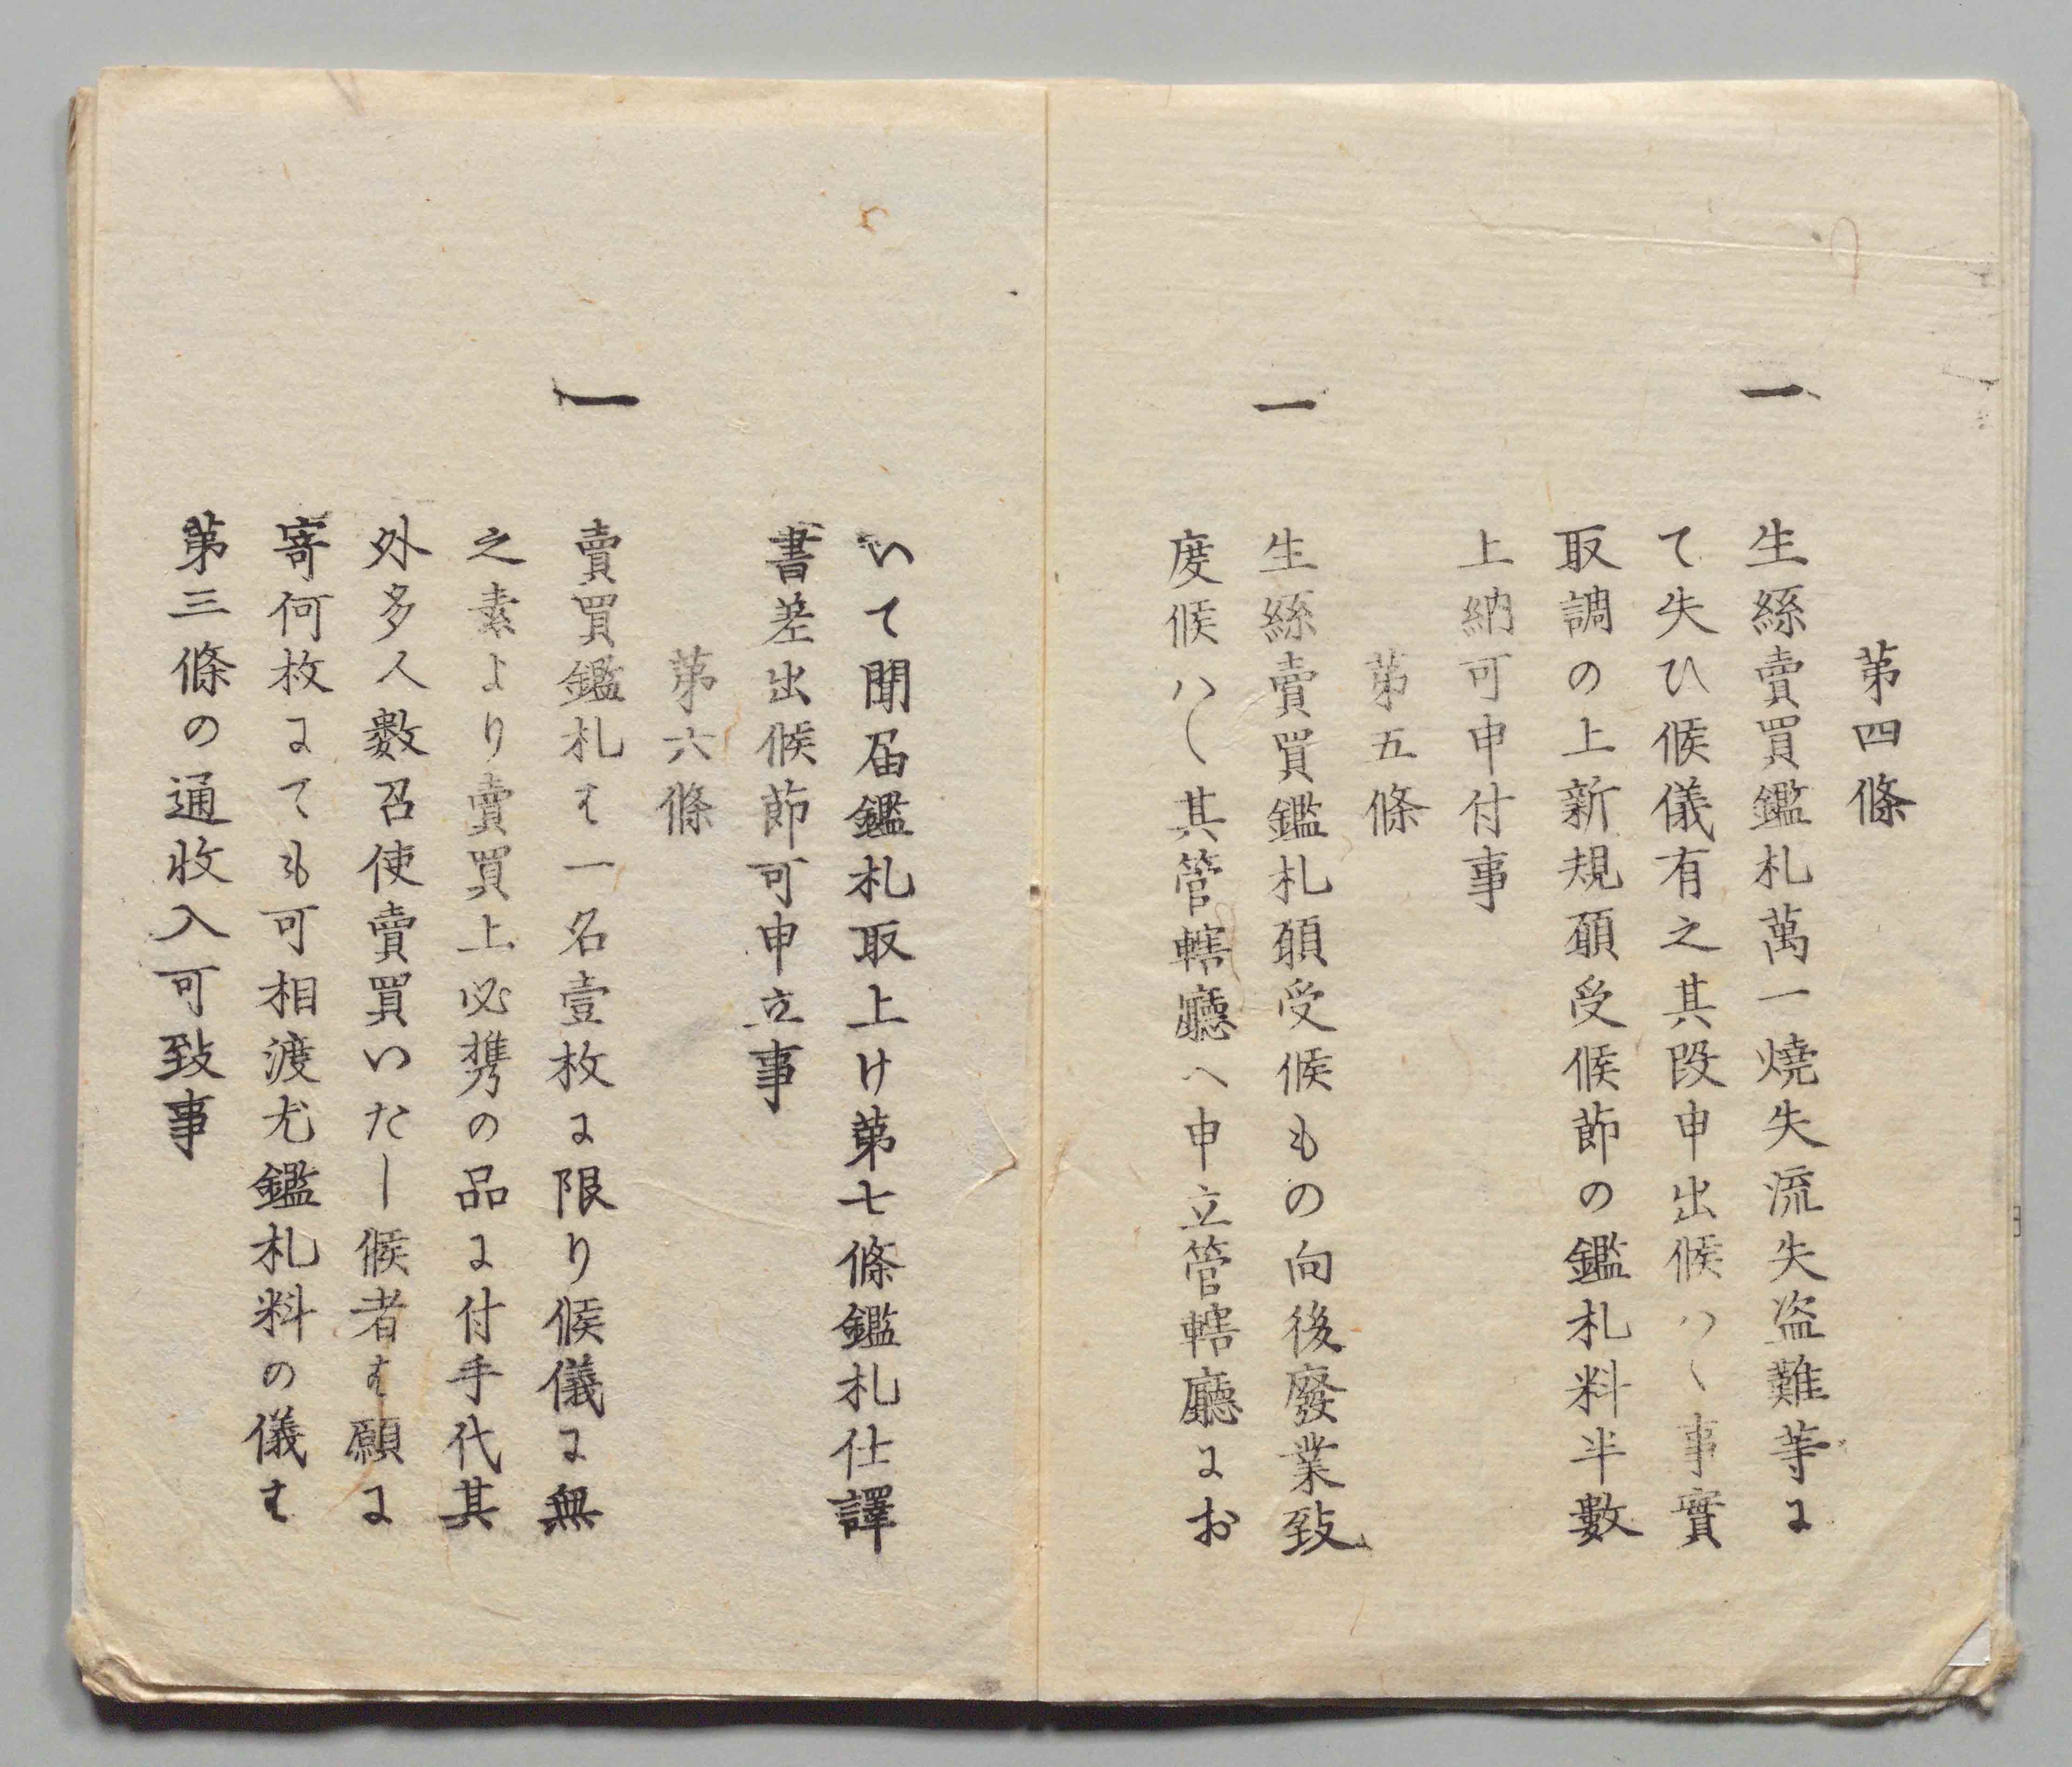 第四條
一 生絲賣買鑑札萬一燒失流失盗難等に
て失ひ候儀有之其段申出候ハヽ事實
取調の上新規願受候節の鑑札料半數
上納可申付事
第五條
一 生絲賣買鑑札願受候もの向後廢業致
度候ハヽ其管轄廳へ申立管轄廳にお
いて聞届鑑札取上け第七條鑑札仕譯
書差出候節可申立事
第六條
一 賣買鑑札は一名壹枚に限り候儀に無
之素より賣買上必携の品に付手代其
外多人數召使賣買いたし候者は願に
寄何枚にても可相渡尤鑑札料の儀は
第三條の通收入可致事